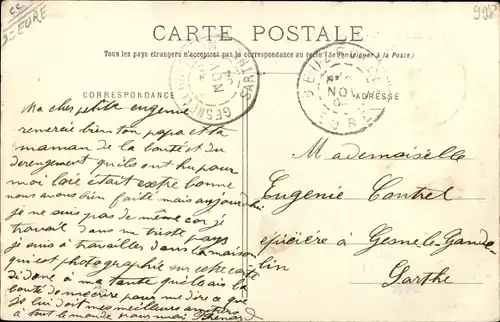 CC
3-EURE
998
CARTE POSTALE
Tous les pays étrangers n'acceptent pas la correspondance au recto (Se renseigner à la Poste)
CORRESPONDANCE
ADRESSE
NOV
SARTHE
NOV
Ma cher petite eugenie
remerci bien ton papa et ta
maman de la bonté et du
derengement quils ont hu pour
moi loie était extre bonne
nous avons bien faite mais aujourd'hui
je ne suis pas de même car je
travail dans un triste pays
je suis à travailler dans la maison
qui est photographié sur cette carte
di donc à ma tante quelle ais la
bonté de m'écrire pour me dire ce que
je lui doit mes meilleurs
à tout le monde pour moi
Mademoiselle
Eugenie Contrel
épicière à Gesne le Gande-
lin
Sarthe